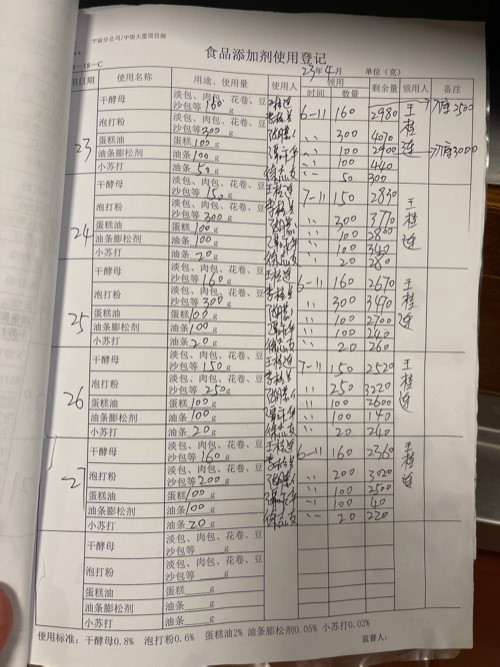 宁储分公司/中银大厦项目部
-18-C
食品添加剂使用登记
23年4月 单位(克)
用日期 使用名称 用途、使用量 使用人 领用 时间 数量 剩余量 领用人 备注
23
干酵母 淡包、肉包、花卷、豆沙包等160g 6-11 160 2980 王桂连 入库2500
泡打粉 淡包、肉包、花卷、豆沙包等300g 〃 300 4070
蛋糕油 蛋糕100g 〃 100 2900 入库3000
油条膨松剂 油条100g 〃 100 440
小苏打 油条50g 〃 50 300
24
干酵母 淡包、肉包、花卷、豆沙包等150g 7-11 150 2830 王桂连
泡打粉 淡包、肉包、花卷、豆沙包等300g 〃 300 3770
蛋糕油 蛋糕100g 〃 100 2800
油条膨松剂 油条100g 〃 100 340
小苏打 油条20g 〃 20 280
25
干酵母 淡包、肉包、花卷、豆沙包等160g 6-11 160 2670 王桂连
泡打粉 淡包、肉包、花卷、豆沙包等300g 〃 300 3470
蛋糕油 蛋糕100g 〃 100 2700
油条膨松剂 油条100g 〃 100 240
小苏打 油条20g 〃 20 260
26
干酵母 淡包、肉包、花卷、豆沙包等150g 7-11 150 2520 王桂连
泡打粉 淡包、肉包、花卷、豆沙包等250g 〃 250 3220
蛋糕油 蛋糕100g 〃 100 2600
油条膨松剂 油条100g 〃 100 140
小苏打 油条20g 〃 20 240
27
干酵母 淡包、肉包、花卷、豆沙包等160g 6-11 160 2360 王桂连
泡打粉 淡包、肉包、花卷、豆沙包等200g 〃 200 3020
蛋糕油 蛋糕100g 〃 100 2500
油条膨松剂 油条100g 〃 100 40
小苏打 油条20g 〃 20 220
干酵母 淡包、肉包、花卷、豆沙包等____g
泡打粉 淡包、肉包、花卷、豆沙包等____g
蛋糕油 蛋糕____g
油条膨松剂 油条____g
小苏打 油条____g
使用标准:干酵母0.8% 泡打粉0.6% 蛋糕油2% 油条膨松剂0.05% 小苏打0.02%
监督人: